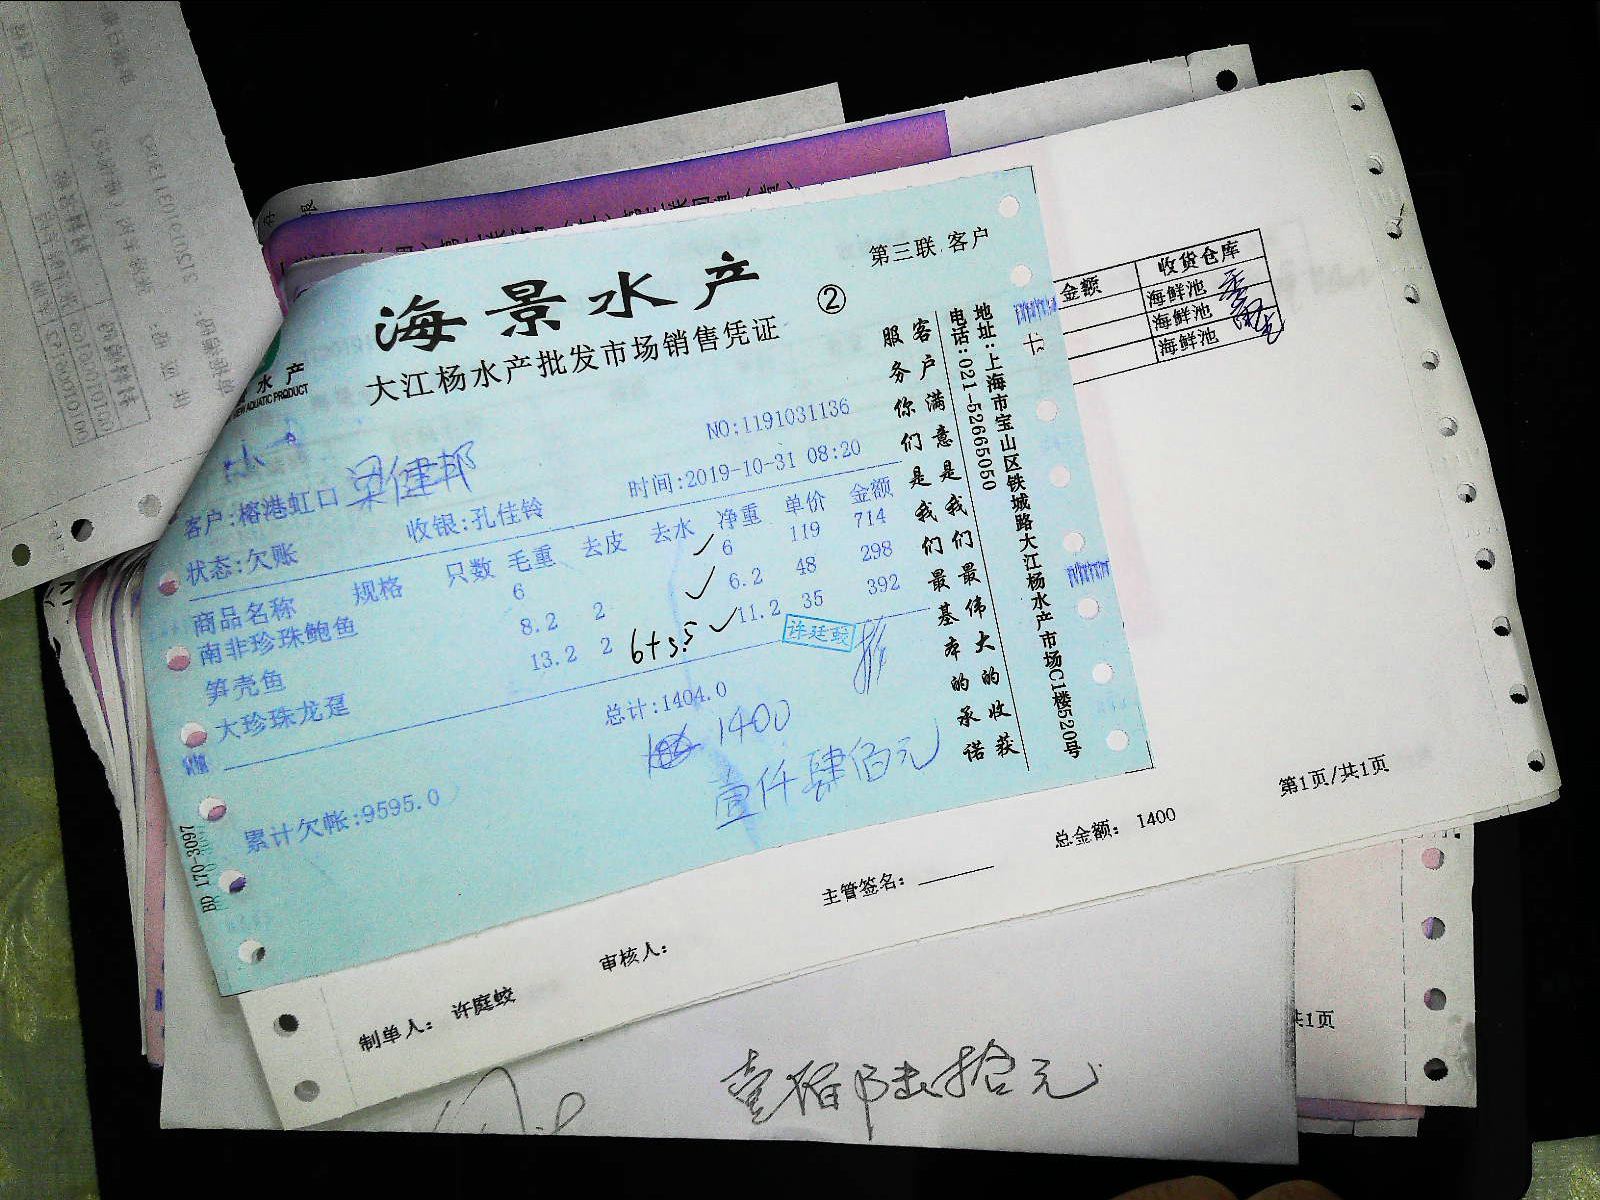 第三联 客户
海景水产
②
大江杨水产批发市场销售凭证
水产
AQUATIC PRODUCT
NO:1191031136
客户:榕港虹口 梁健邦
收银:孔佳铃
时间:2019-10-31 08:20
状态:欠账
商品名称 规格 只数 毛重 去皮 去水 净重 单价 金额
南非珍珠鲍鱼 6 6 119 714
笋壳鱼 8.2 2 6.2 48 298
大珍珠龙趸 13.2 2 11.2 35 392
6+3.5
许廷蛟
总计:1404.0
1400
壹仟肆佰元
累计欠帐:9595.0
客户满意是我们最伟大的收获
服务你们是我们最基本的承诺
地址:上海市宝山区铁城路大江杨水产市场C1楼520号
电话:021-52665050
BD 170-3097
金额 收货仓库
海鲜池
海鲜池
海鲜池
第1页/共1页
总金额: 1400
主管签名:
审核人:
制单人: 许庭蛟
共1页
壹佰陆拾元